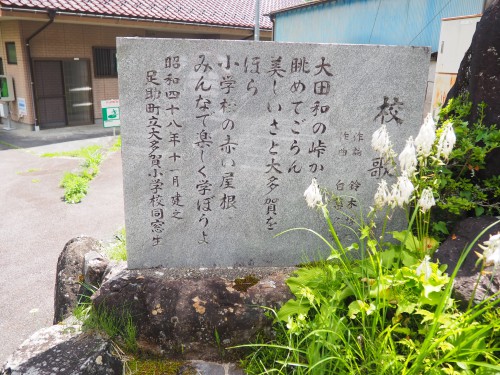 校歌
作詞 鈴木
作曲 白
大田和の峠か
眺めてごらん
美しいさと大多賀を
ほら
小学校の赤い屋根
みんなで楽しく学ぼうよ
昭和四十八年十一月建之
足助町立大多賀小学校同窓生